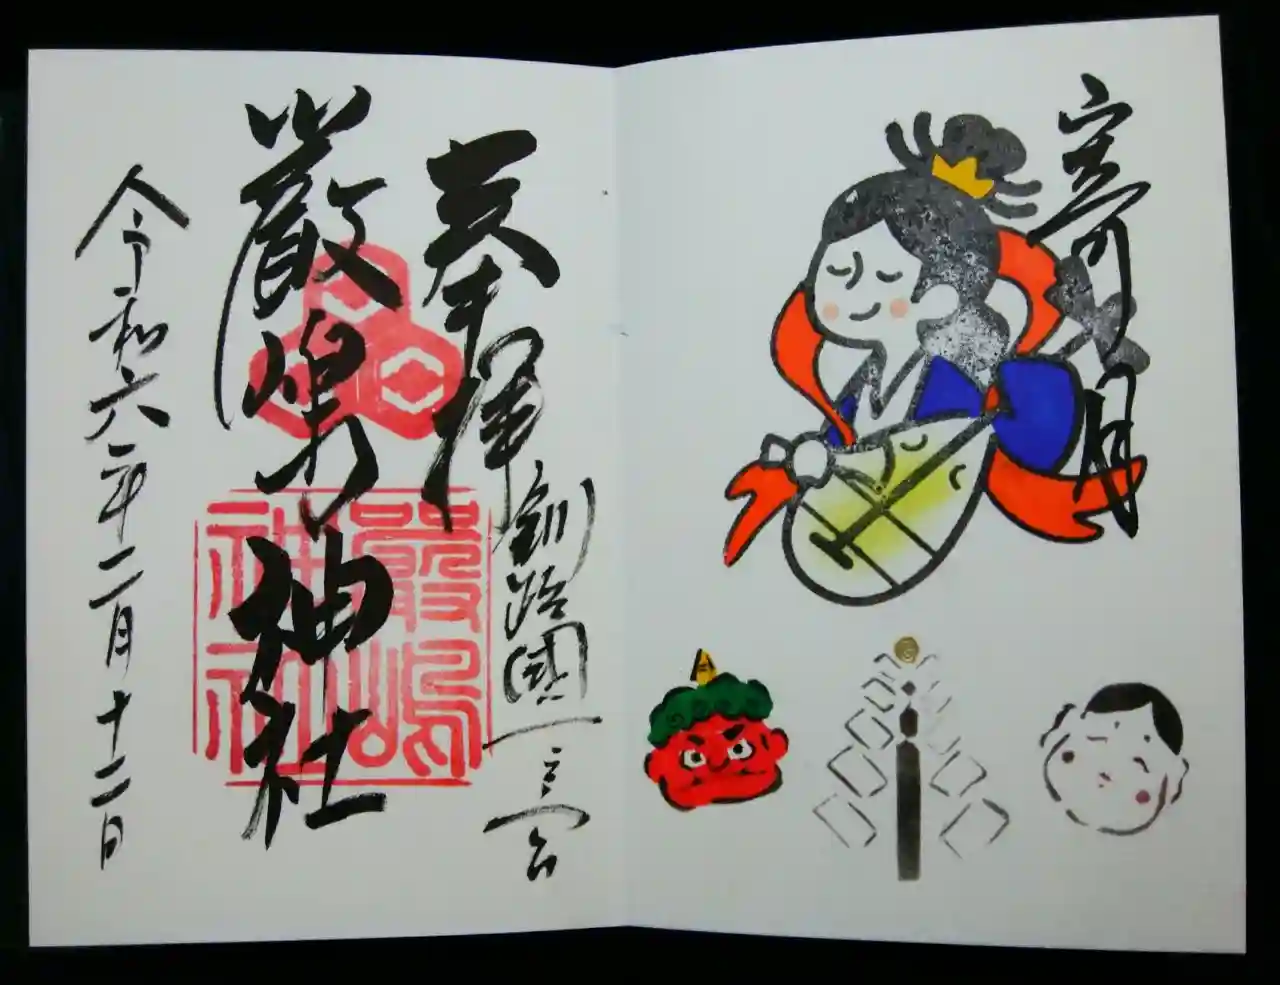 寄月
奉拝
釧路國一之宮
嚴嶋神社
嚴嶋
神社
令和六年二月十二日